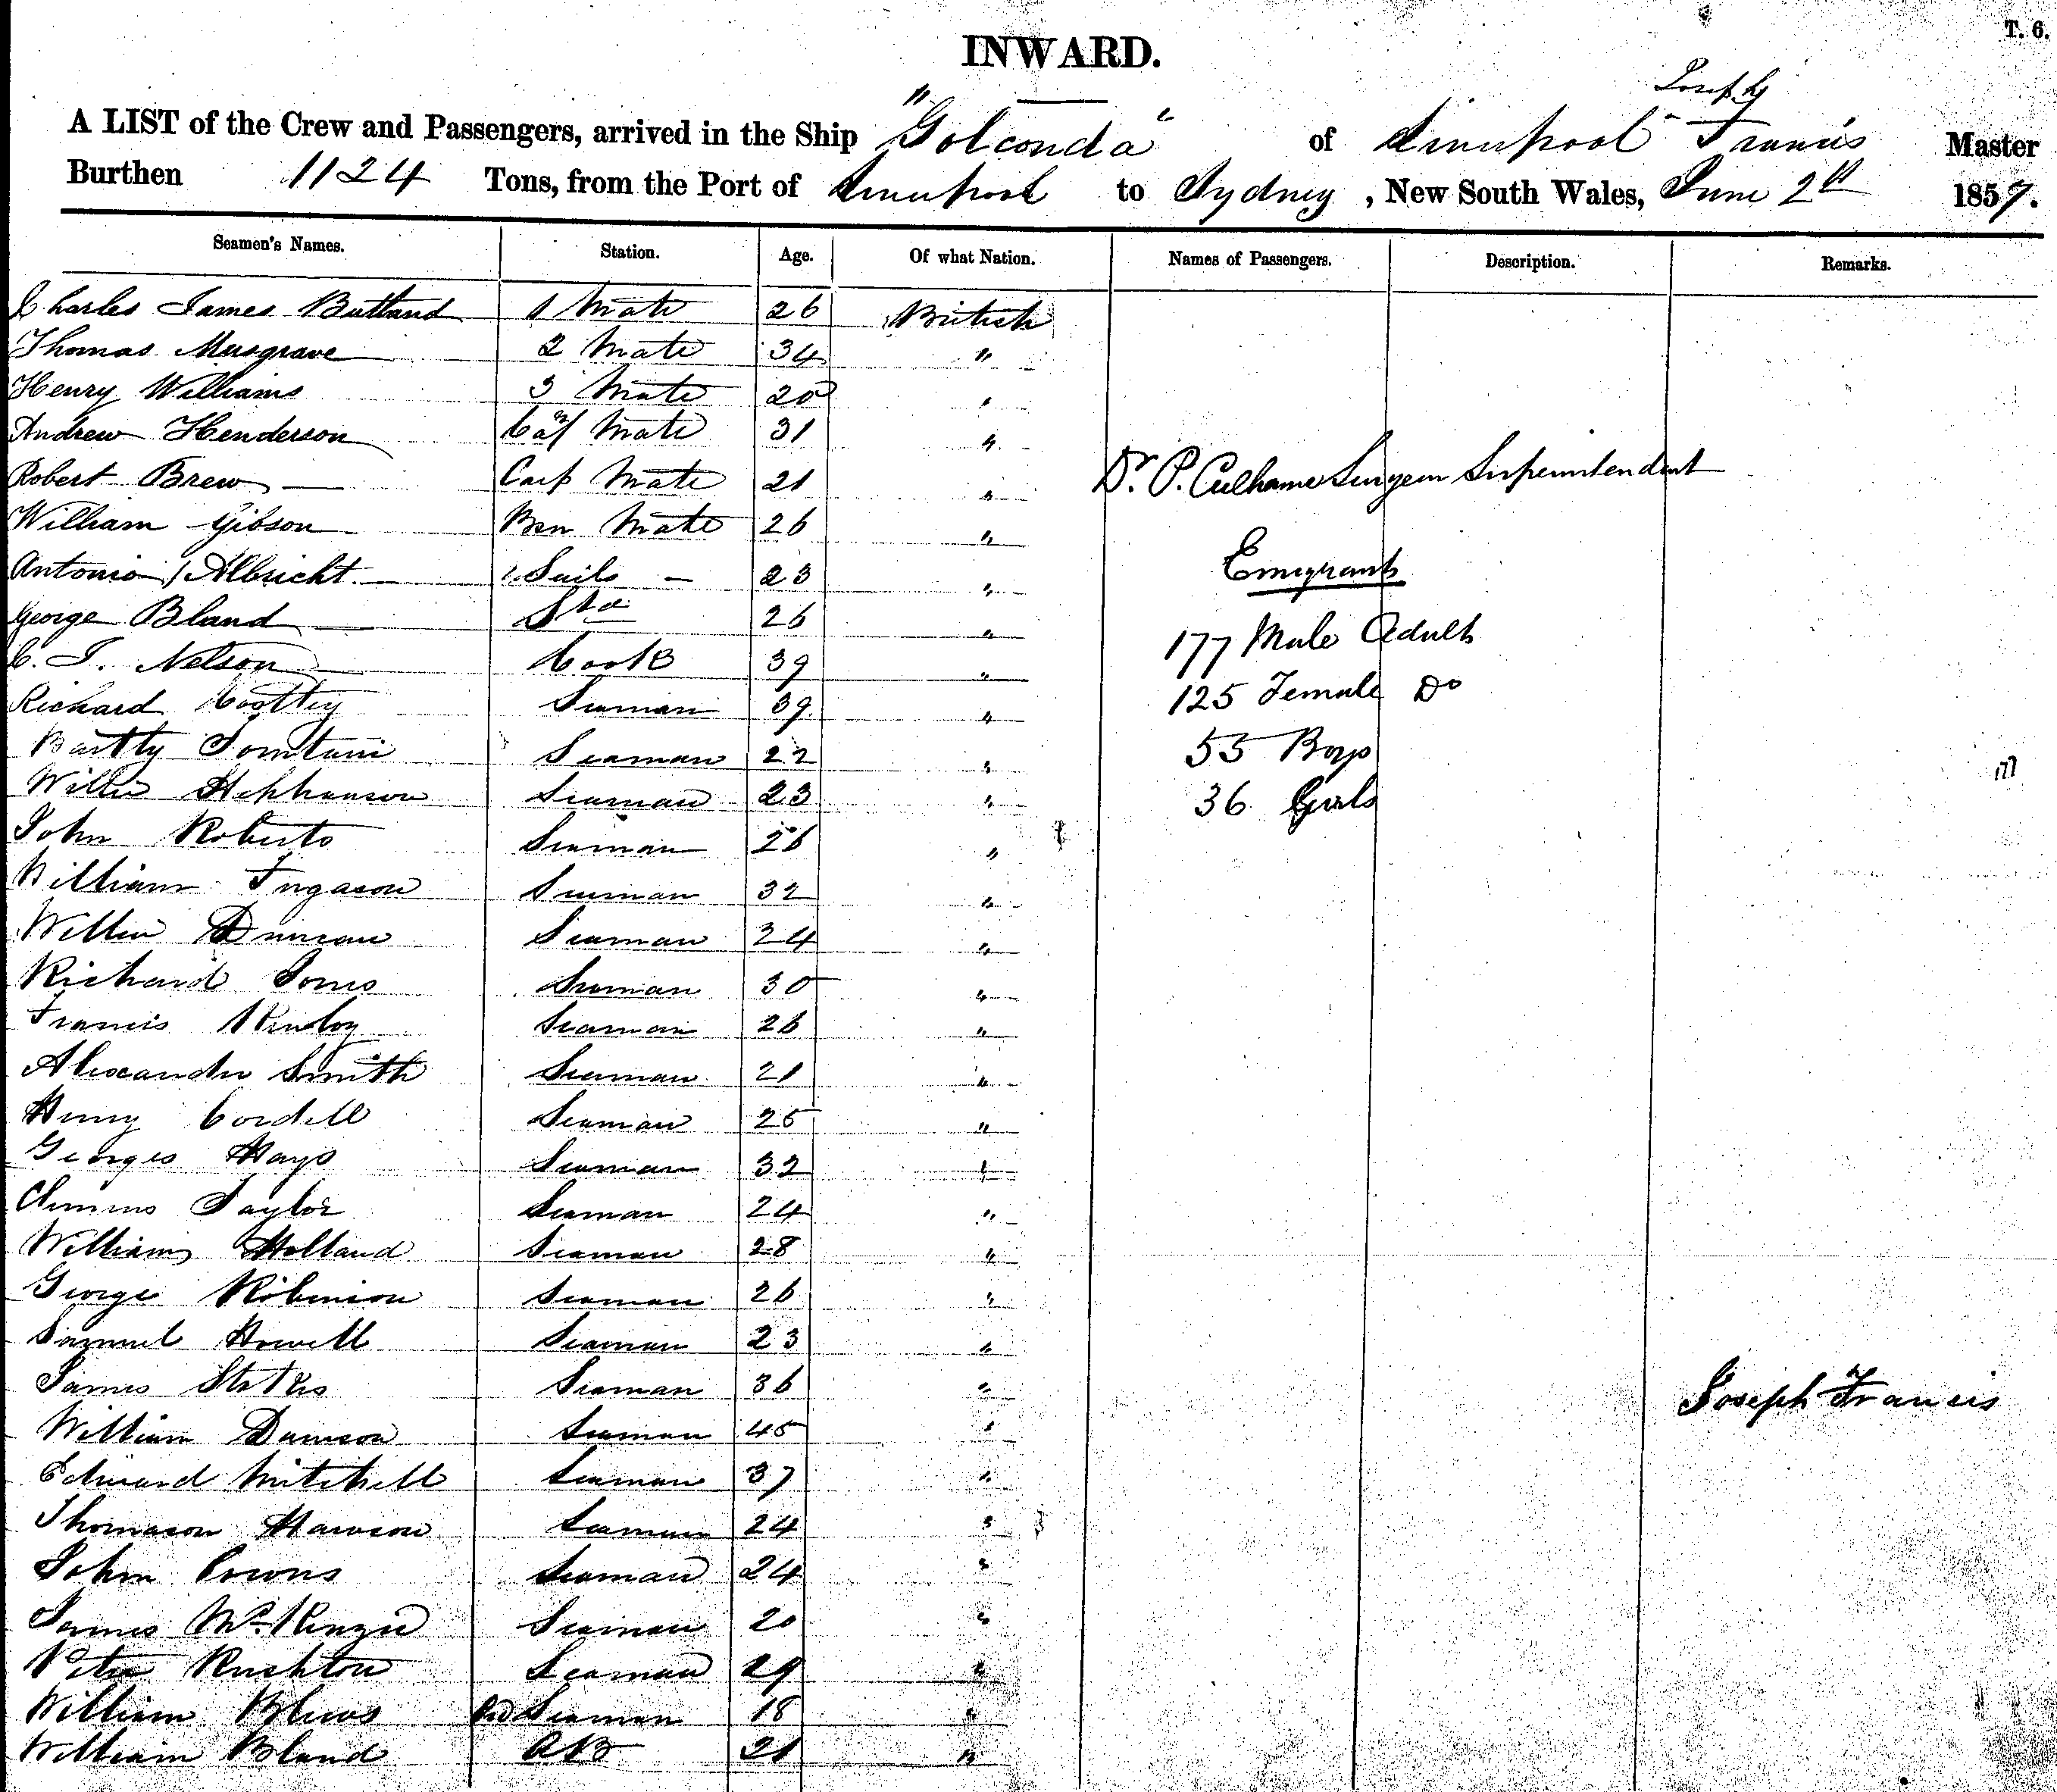 T. 6.
INWARD.
Joseph
A LIST of the Crew and Passengers, arrived in the Ship "Golconda" of Liverpool Francis Master
Burthen 1124 Tons, from the Port of Liverpool to Sydney, New South Wales, June 2d 1857.
Seamen's Names. Station. Age. Of what Nation. Names of Passengers. Description. Remarks.
Charles James Butland 1 Mate 26 British
Thomas Musgrave 2 Mate 34 "
Henry Williams 3 Mate 20 "
Andrew Henderson Mate 31 "
Robert Brew Carp Mate 21 "
Dr. P. Culhane Surgeon Superintendent
William Gibson Bsn Mate 26 "
Emigrants
Antonio Albricht Sails 23 "
George Bland Std 26 "
177 Male Adults
C. J. Nelson Cook 39 "
125 Female Do
Richard 39 "
Seaman
Bartly 22 "
Seaman
55 Boys
Willm Stephenson Seaman 23 "
36 Girls
John Roberts Seaman 26 "
William Seaman 32 "
Willm Duncan Seaman 24 "
Richard Jones Seaman 30 "
Francis Seaman 26 "
Alexander Smith Seaman 21 "
Henry Cordell Seaman 25 "
Georges Hays Seaman 32 "
Taylor Seaman 24 "
William Holland Seaman 28 "
George Robinson Seaman 26 "
Samuel Howell Seaman 23 "
James Seaman 36 "
Joseph Francis
William Seaman 45 "
Edward Mitchell Seaman 37 "
Thomason Seaman 24 "
John Seaman 24 "
James McKenzie Seaman 20 "
Peter Rushton Seaman 29 "
William Seaman 18 "
William Bland AB 21 "